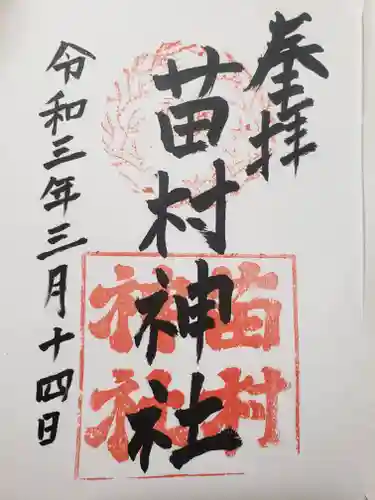 奉拝
苗村神社
苗村
神社
令和三年三月十四日